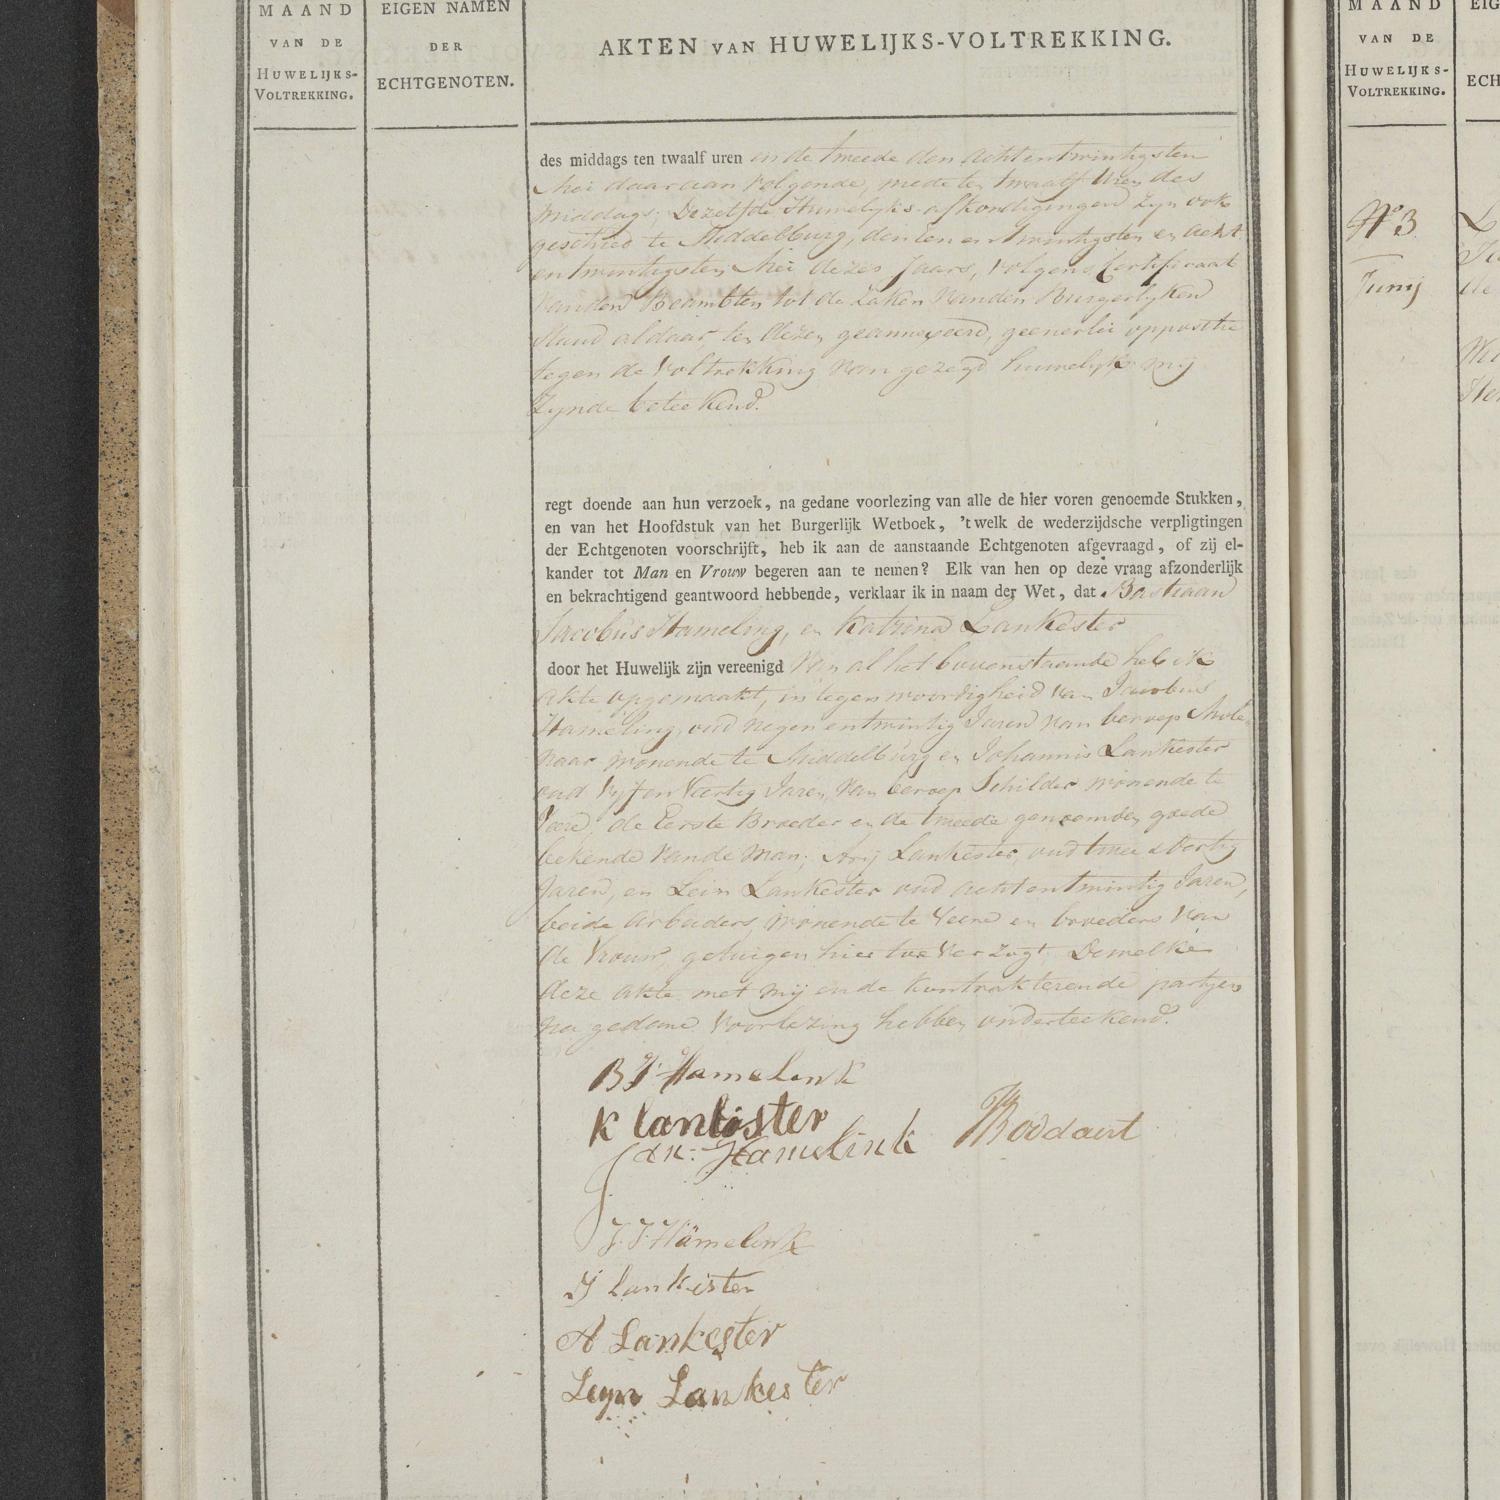 MAAND
VAN DE
HUWELIJKS-
VOLTREKKING.
EIGEN NAMEN
DER
ECHTGENOTEN.
AKTEN VAN HUWELIJKS-VOLTREKKING.
des middags ten twaalf uren en de tweede den achtentwintigsten
Mei daaraan volgende, mede ten twaalf Uren des
middags; Dezelfde Huwelyks-afkondigingen zyn ook
geschied te Middelburg, den een en twintigsten en acht
en twintigsten Mei dezes Jaars, volgens Certificaat
vanden Beambten tot de Zaken vanden Burgerlyken
Stand aldaar ten dezen geannexeerd, geenerlei oppositie
tegen de Voltrekking van gezegd huwelyk mij
zynde beteekend.
regt doende aan hun verzoek, na gedane voorlezing van alle de hier voren genoemde Stukken,
en van het Hoofdstuk van het Burgerlijk Wetboek, 't welk de wederzijdsche verpligtingen
der Echtgenoten voorschrijft, heb ik aan de aanstaande Echtgenoten afgevraagd, of zij el-
kander tot Man en Vrouw begeren aan te nemen? Elk van hen op deze vraag afzonderlijk
en bekrachtigend geantwoord hebbende, verklaar ik in naam der Wet, dat Bastiaan
Jacobus Hameling, en Katrina Lankester
door het Huwelijk zijn vereenigd Van al het bovenstaande heb ik
akte opgemaakt, in tegenwoordigheid van Jacobus
Hameling, oud negen entwintig Jaren van beroep Mole
naar wonende te Middelburg en Johannis Lankester
oud Vyf en Veertig Jaren van beroep Schilder wonende te
Veere, de Eerste Broeder en de tweede genoemden goede
bekende vande Man; Arij Lankester, oud twee & dertig
Jaren, en Lein Lankester oud achtentwintig Jaren,
beide Arbeiders, wonende te Veere en broeders van
de Vrouw, getuigen hier toe verzogt. Dewelke
deze akte met mij en de kontrakterende partyen
na gedane Voorlezing hebben onderteekend.
B J Hamelink
K lankester
Hamelink
Boddaert
J. J. Hamelink
J lankister
A Lankester
Leyn Lankester
MAAND
VAN DE
HUWELIJKS-
VOLTREKKING.
EIG
ECH
No 3
Junij